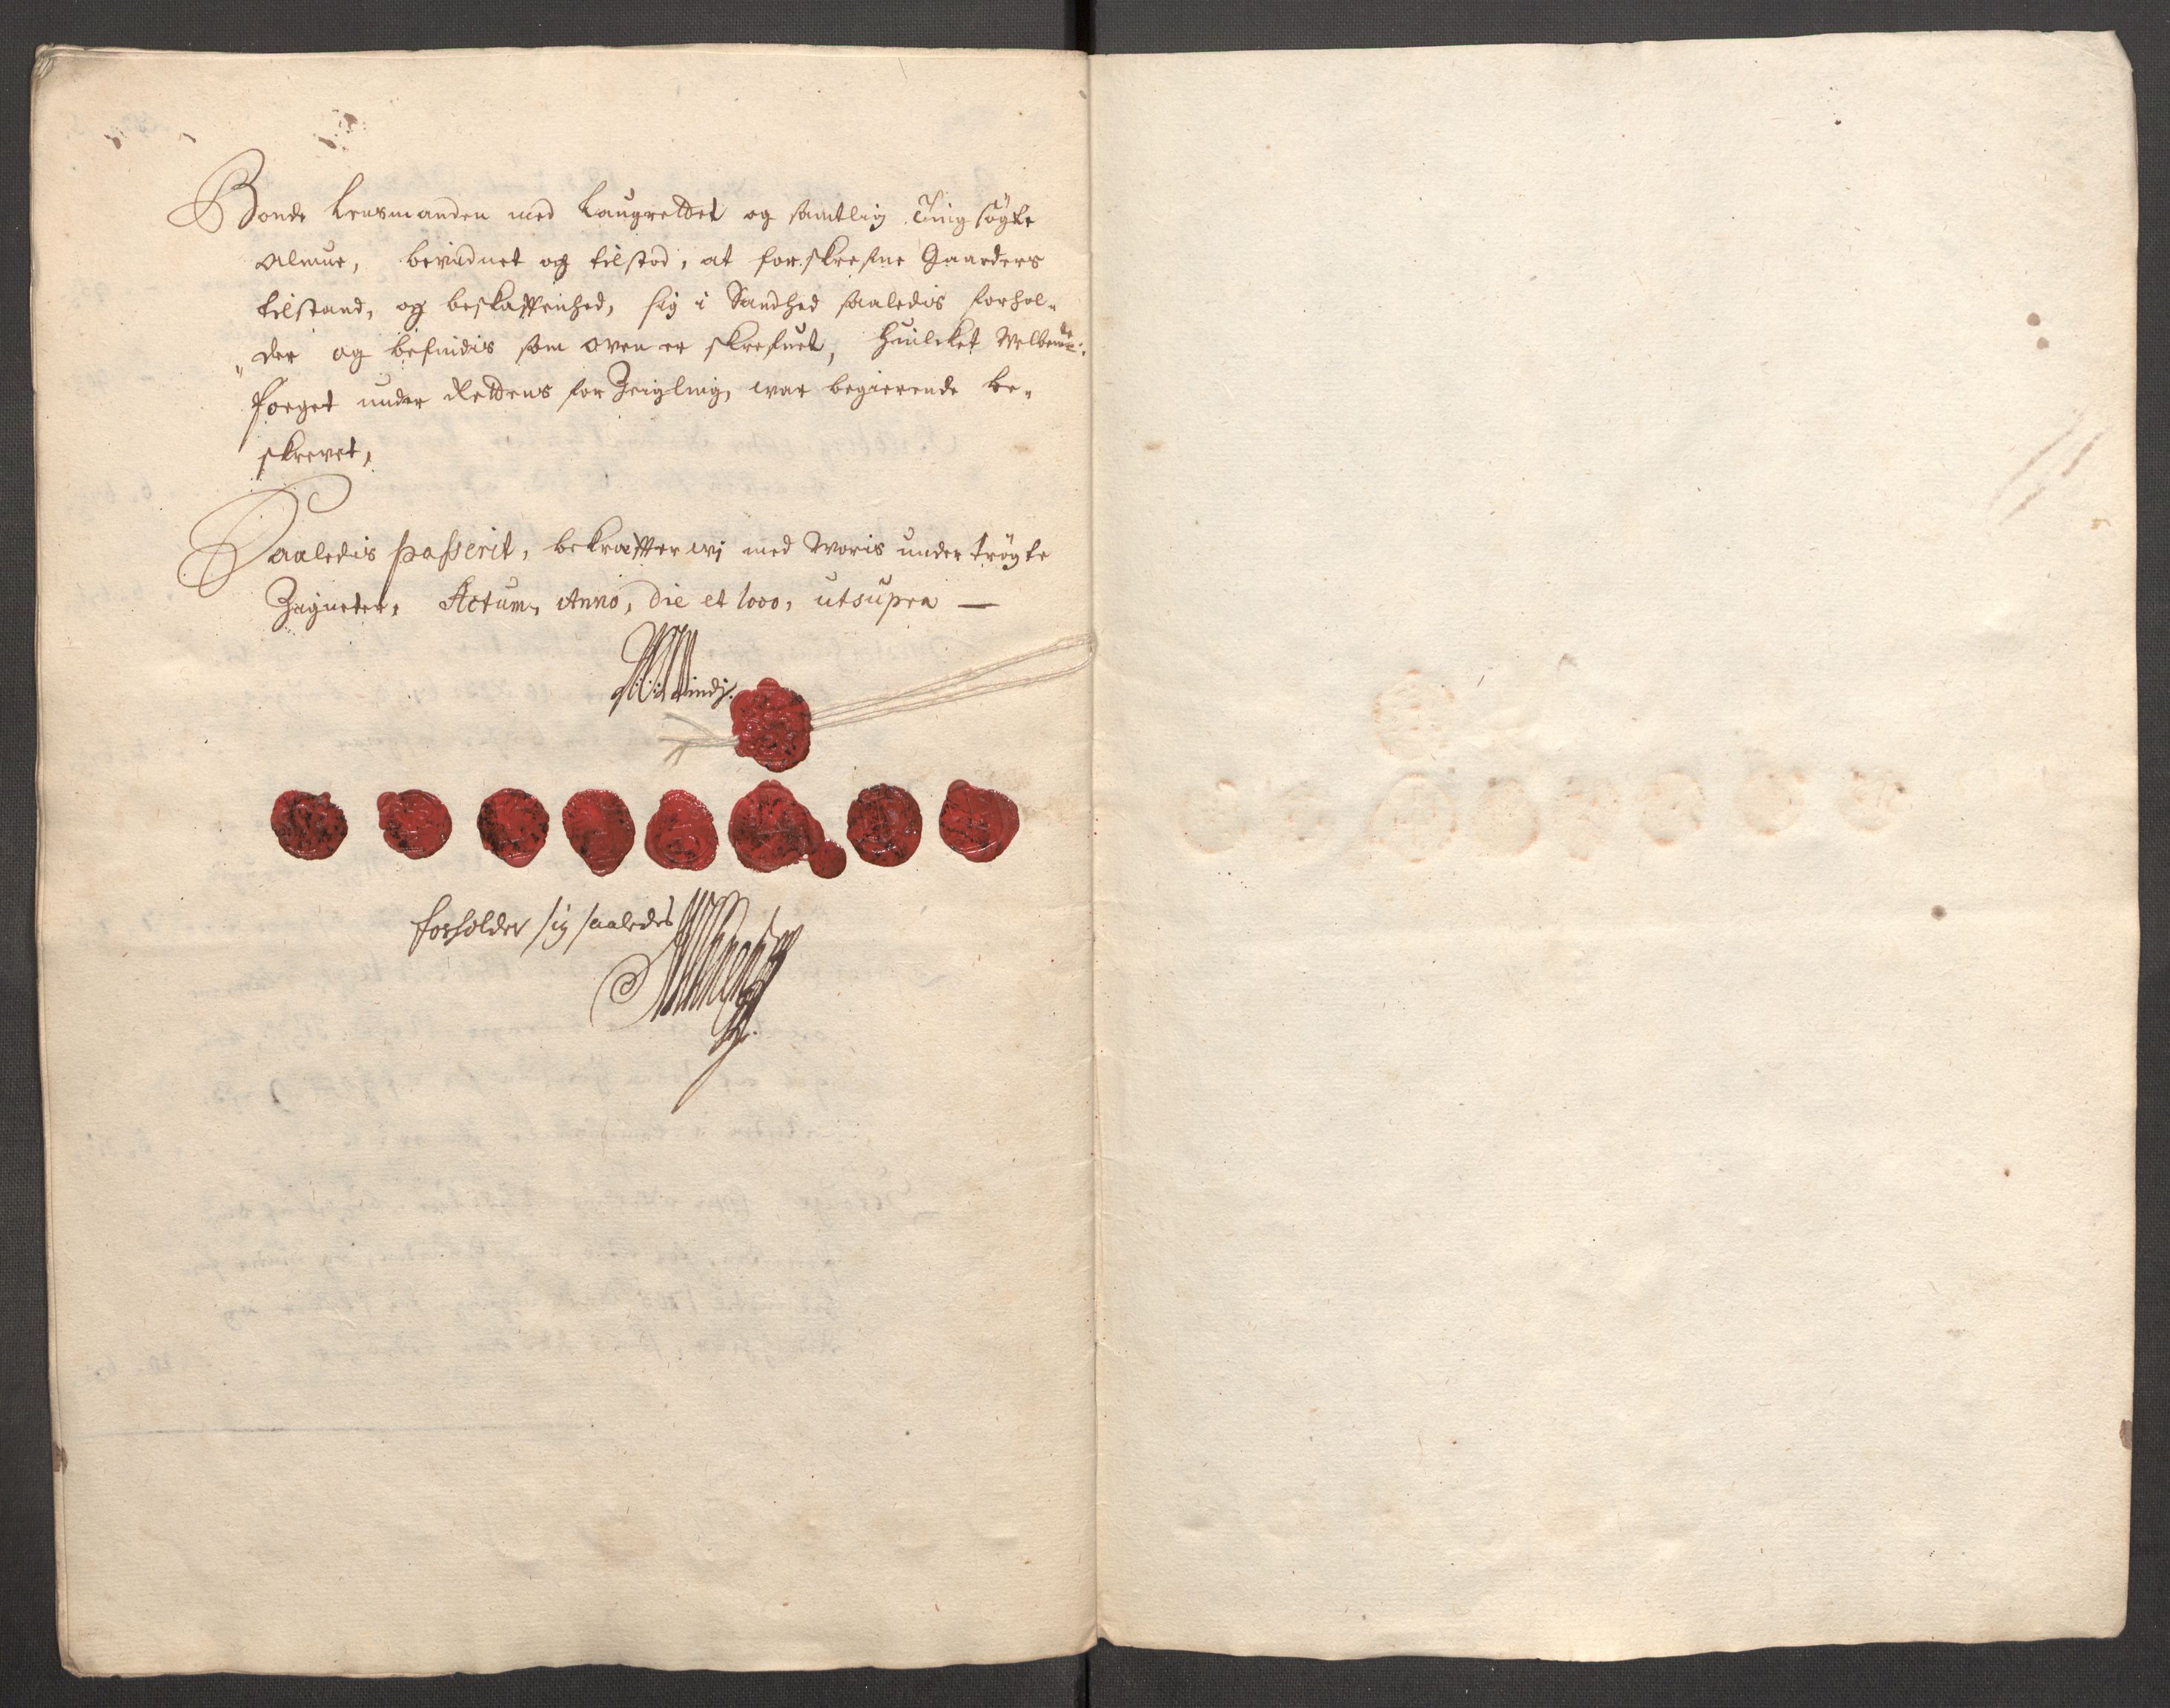 Bonde Lensmanden med Laugrettet og samtlig Tingsøgte
Almue, bevidnet og tilstod, at forskrefne Gaarders
tilstand, og beskaffenhed, sig i Sandhed saaledis forhol-
der og befindis som oven er skrefuet, Huilcket Welbemte:
foeget under Rettens forZeigling, war begierende be-
skrevet,
Saaledis passerit, bekræffter wj med Woris undertrögte
Zigneter, Actum, Anno, die et loco, utsupra —
forholder sig saaledes